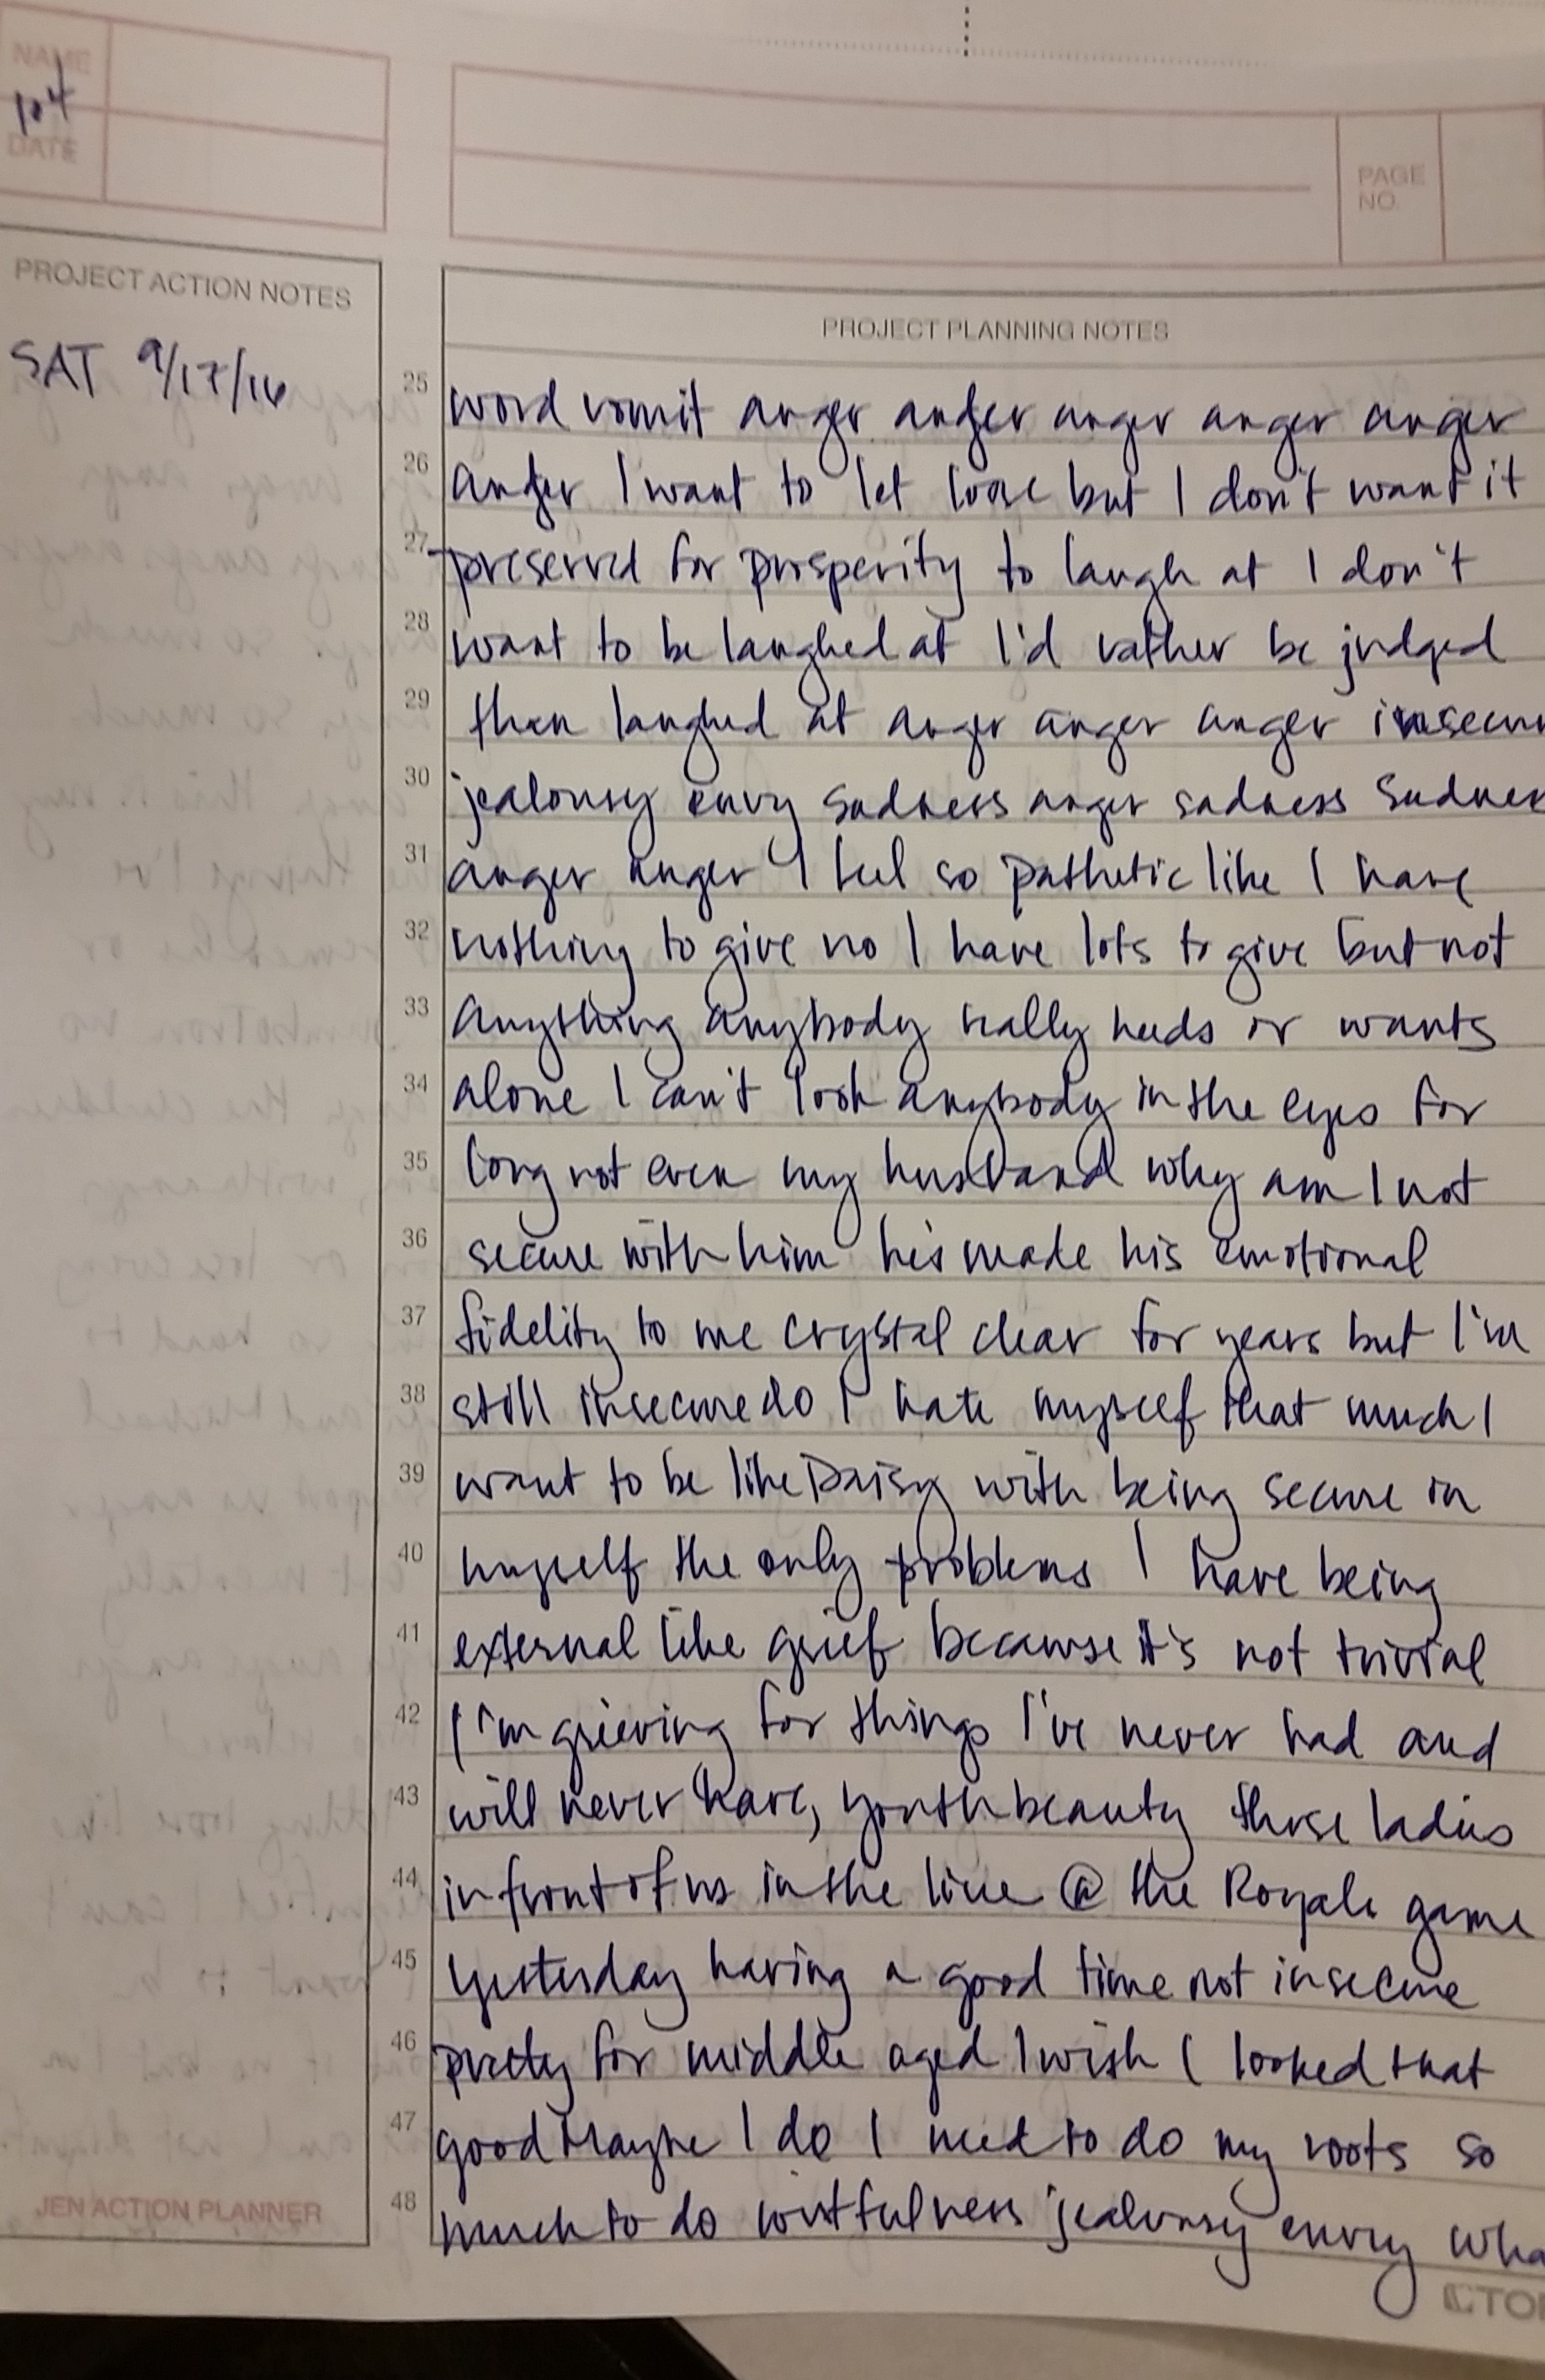 NAME
104
DATE
PAGE
NO.
PROJECT ACTION NOTES
PROJECT PLANNING NOTES
SAT 9/17/16
25 word vomit anger anger anger anger anger
26 anger I want to let loose but I don't want it
27 preserved for prosperity to laugh at I don't
28 want to be laughed at I'd rather be judged
29 than laughed at anger anger anger insecur
30 jealousy envy sadness anger sadness sadnes
31 anger anger I feel so pathetic like I have
32 nothing to give no I have lots to give but not
33 anything anybody really needs or wants
34 alone I can't look anybody in the eyes for
35 long not even my husband why am I not
36 secure with him he's made his emotional
37 fidelity to me crystal clear for years but I'm
38 still insecure do I hate myself that much I
39 want to be like Daisy with being secure in
40 myself the only problems I have being
41 external like grief because it's not trivial
42 I'm grieving for things I've never had and
43 will never have, youth beauty those ladies
44 in front of us in the line @ the Royals game
45 yesterday having a good time not insecure
46 pretty for middle aged I wish I looked that
47 good Maybe I do I need to do my roots so
48 much to do wistfulness jealousy envy wha
JEN ACTION PLANNER